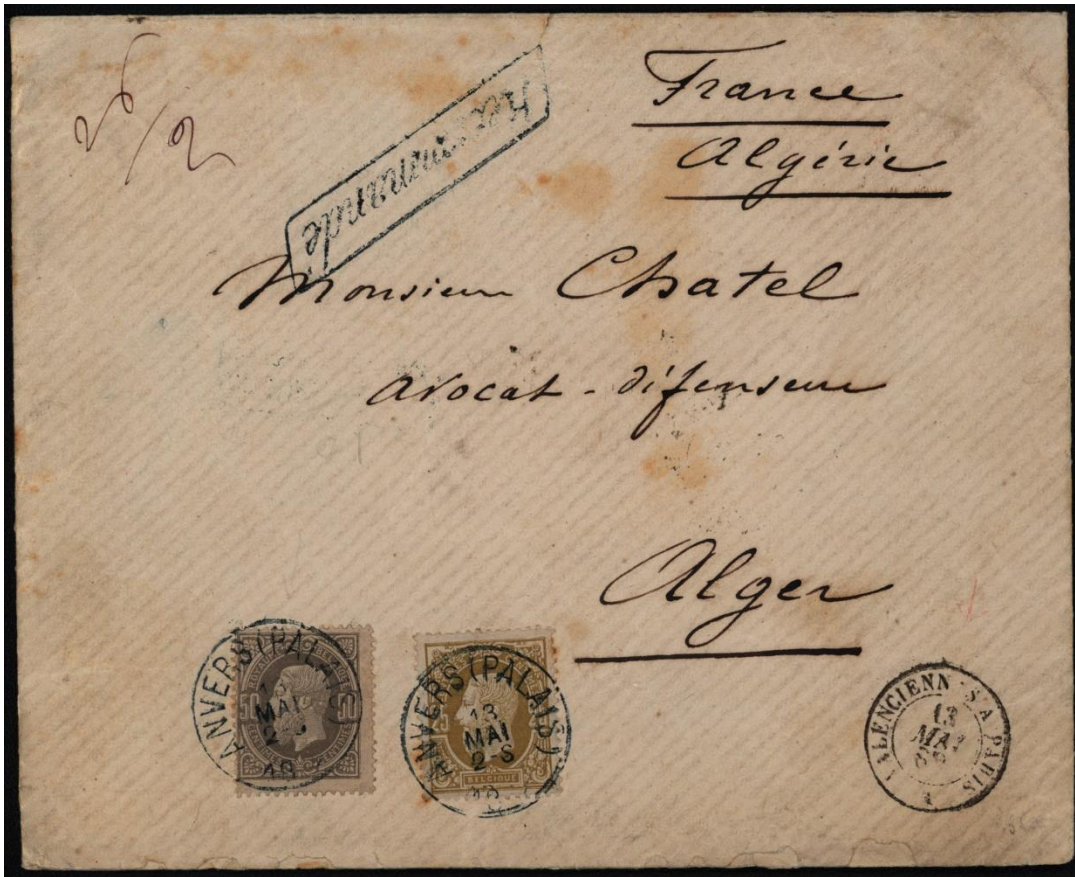 France
Algérie
Recommandé
Monsieur Chatel
avocat-défenseur
Alger
ANVERS (PALAIS)
13
MAI
2-S
50 50
ANVERS (PALAIS)
13
MAI
2-S
BELGIQUE
VALENCIENNES A PARIS
13
MAI